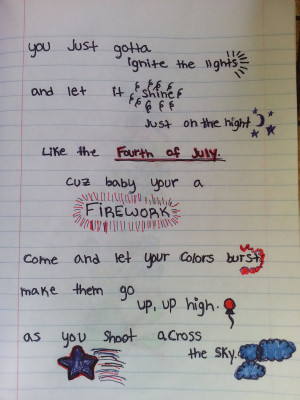 you Just gotta
ignite the lights
and let it shine
Just on the night
Like the Fourth of July.
cuz baby your a
FIREWORK
come and let your colors burst
make them go
up, up high.
as you shoot across
the sky.